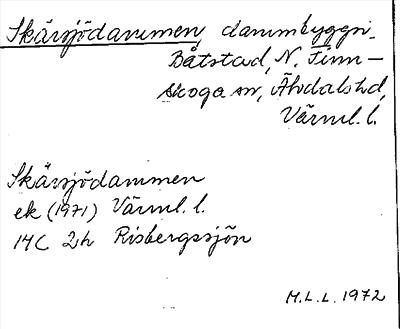 Skärsjödammen, dammbyggn.
Båtstad, N. Finn-
skoga sn, Älvdals hd,
Värml. l.
Skärsjödammen
ek (1971) Värml. l.
14C 2h Risbergssjön
M.L.L. 1972